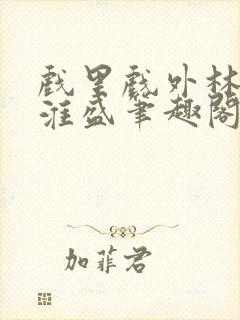 戏里戏外林
淮盛笔趣阁
加菲君